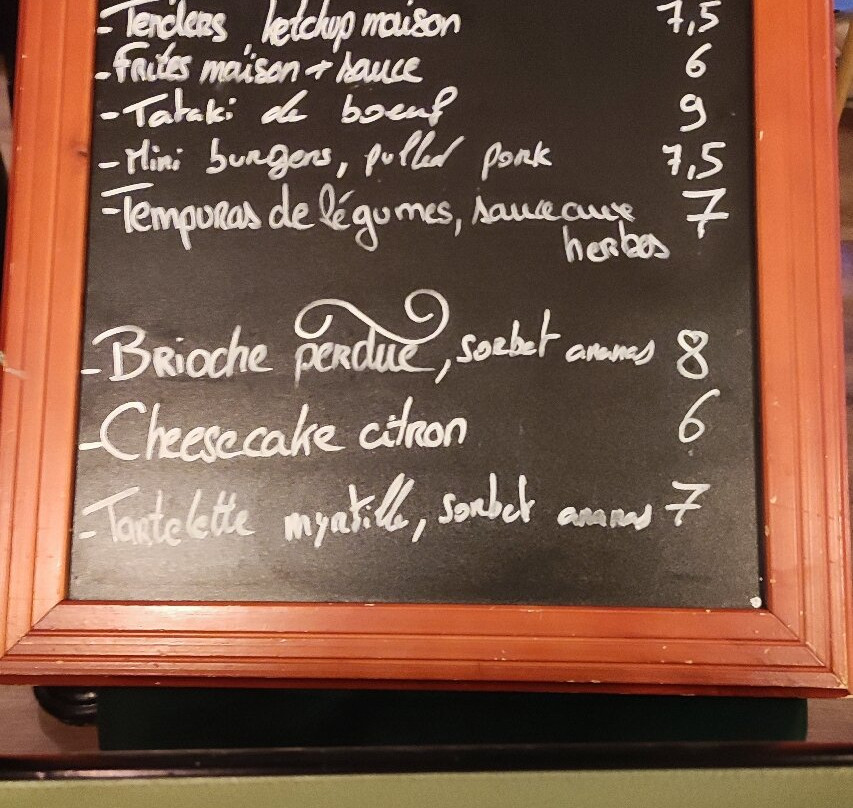 -Tenders ketchup maison 7,5
-Frites maison + sauce 6
-Tataki de boeuf 9
-Mini burgers, pulled pork 7,5
-Tempuras de légumes, sauce aux 7
herbes
-Brioche perdue, sorbet ananas 8
-Cheesecake citron 6
-Tartelette myrtille, sorbet ananas 7